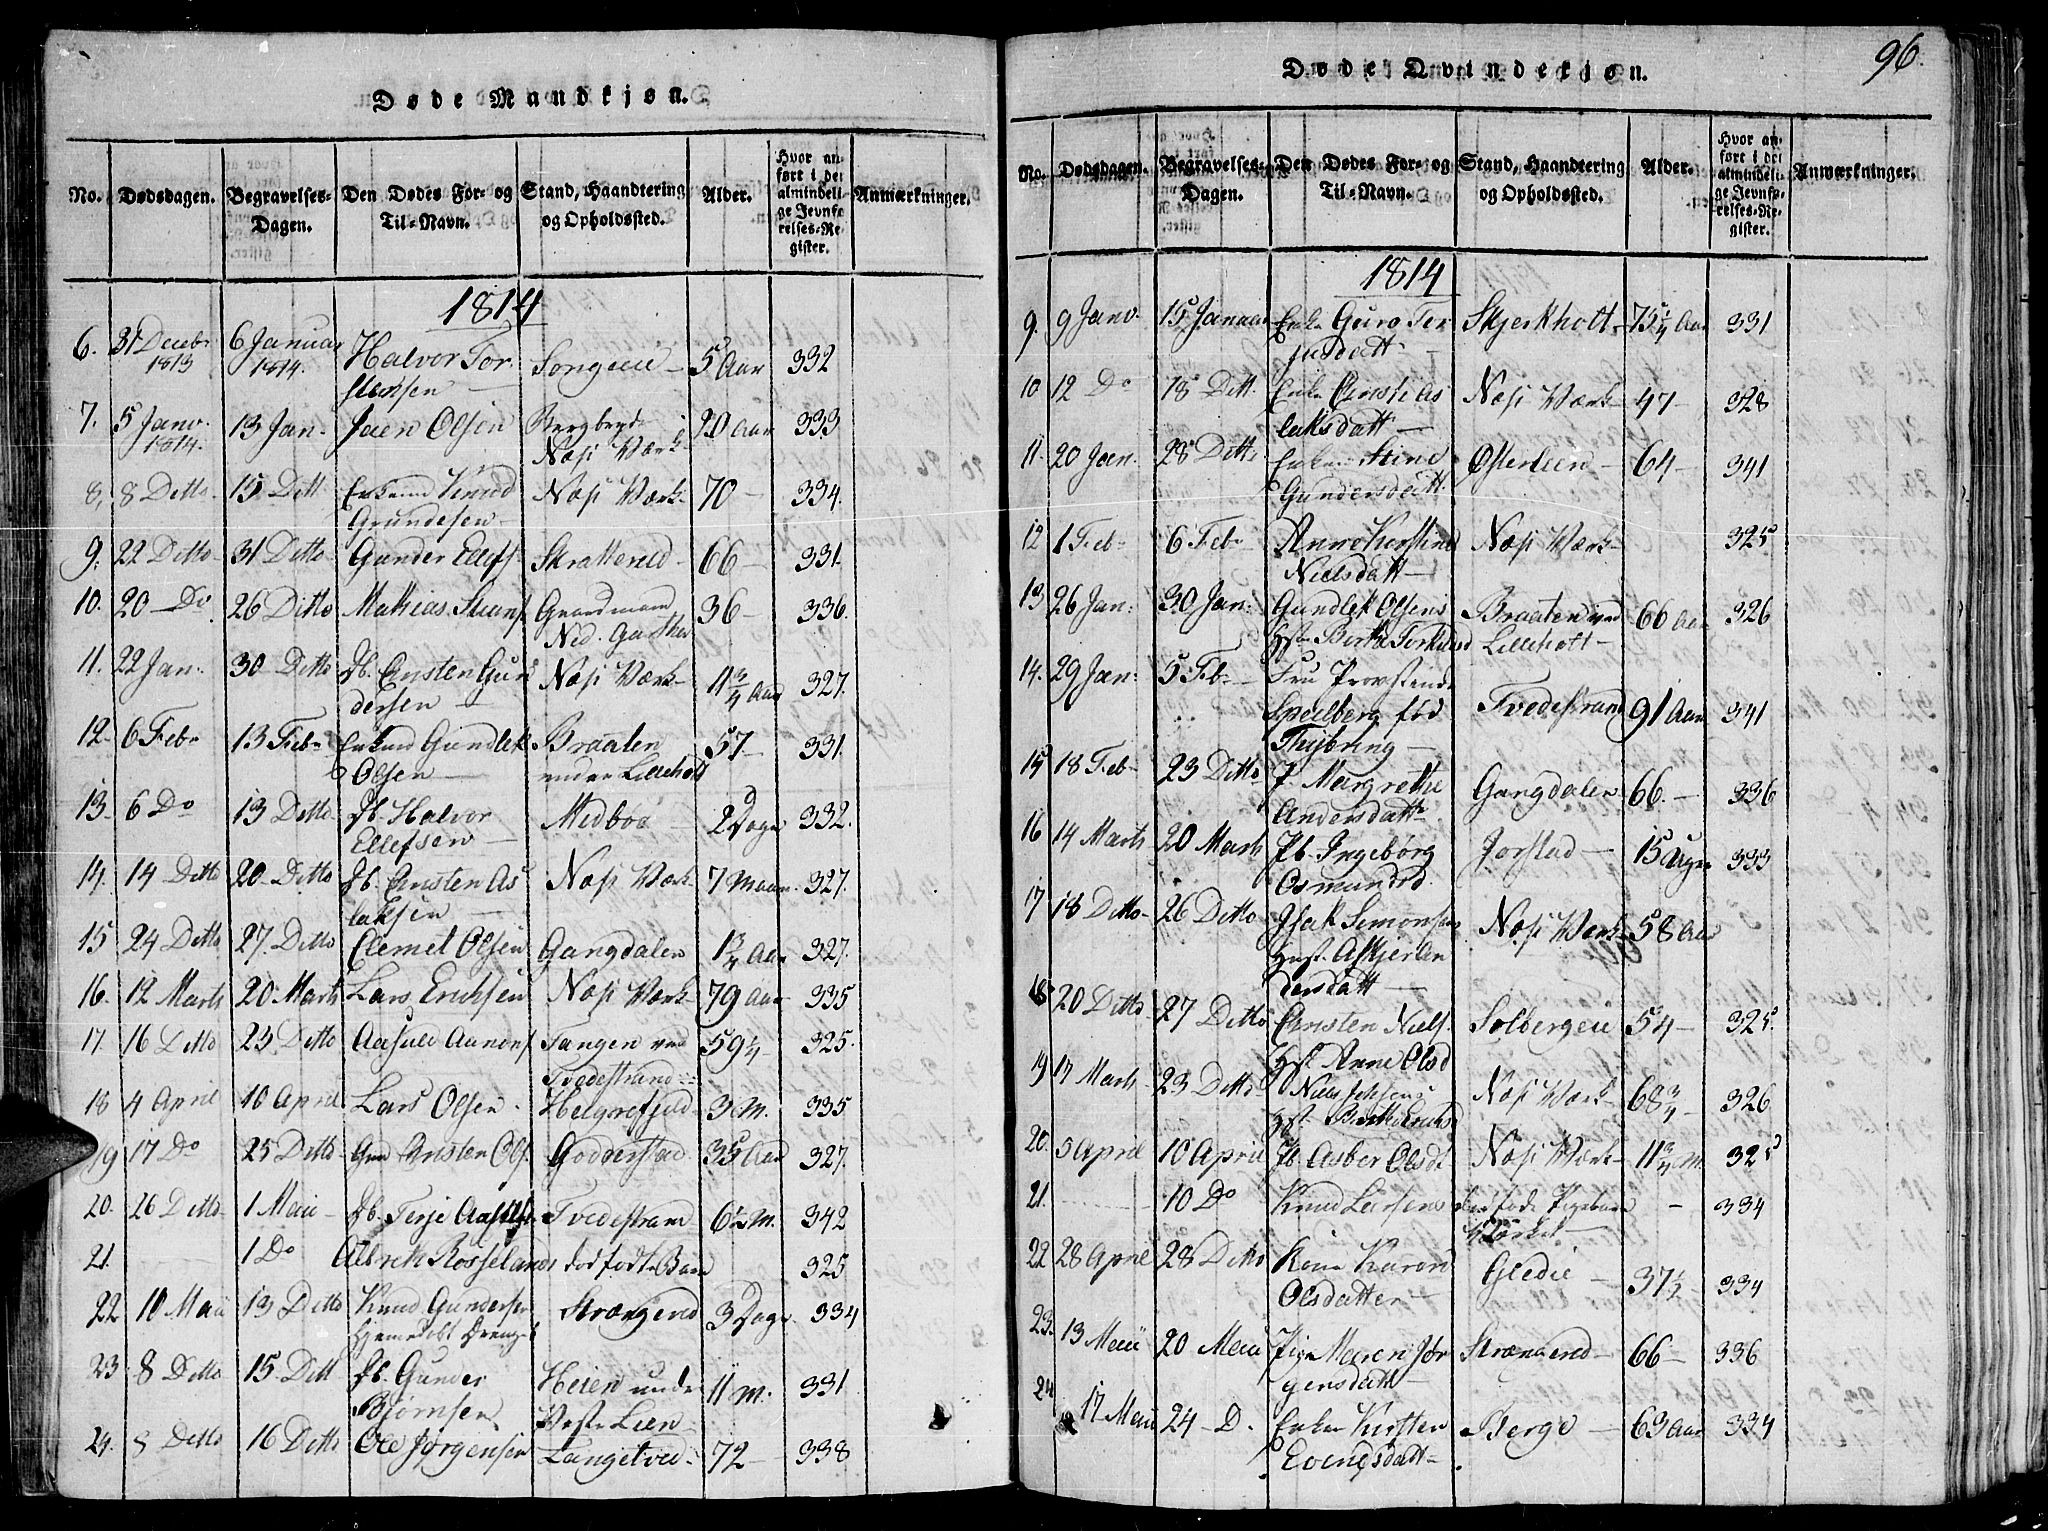 Døde Mandkjøn.
No. Dødsdagen. Begravelses-Dagen. Den Dødes For- og Til-Navn. Stand, Haandtering og Opholdssted. Alder. Hvor anført i det almindelige Jevnførelses-Register. Anmærkninger.
1814
6. 31 Decebr 1813 6 Januar 1814. Halvor Tor
stensen Songeeie 5 Aar 332
7. 5 Janv. 1814. 13 Jan. Jaen Olsen
Næss Værk 20 Aar 333
8. 8 Ditto 15 Ditt Knud
Grundesen Næss Værk 70 334.
9. 22 Ditto 31 Ditto Gunder Ellefs. Skratterud 66 331.
10. 20 Do 26 Ditto Mathias
36 336.
11. 22 Jan. 30 Ditto Jb. Christen Gun
dersen Næss Værk 11 3/4 Aar 327.
12. 6 Feb. 13 Febr Gundlek
Olsen Braaten
under Lilleholt 57 331.
13. 6 Do 13 Ditto Jb. Halvor
Ellefsen Midboe 2 Dage 332.
14. 14 Ditto 20 Ditto Jb. Christen As
laksen Næss Værk 7 Maan. 327.
15 24 Ditto 27. Ditto Clemet Olsen Gangdalen 1 3/4 Aar 327.
16. 12 Marts 20 Marts Lars Erichsen Næss Værk 79 Aar 335
17. 16 Ditto 23 Ditto Aasuld Aanons. Tangen ved
Tvedestrand 59 1/4 325.
18 4 April 10 April Lars Olsen Helgrefjeld 3 M. 335
19 17 Do 25 Ditto Christen Ols. Godderstad 35 Aar 327.
20. 26 Ditto 1 Maii Jb. Terje Tvedestrand 6 1/2 M. 342
21. 1 Do Albrek Rosselands dødfødt Barn 325
22 10 Maii 13 Ditto Knud Gundersen
Hjemedøbt Drenge Strængerud 3 Dage 334
23. 8 Ditto 15 Ditt Jb. Gunder
Bjørnsen Heien under
Lien 11 M. 331
24. 8 Ditto 16 Ditto Ole Jørgensen Langetved 72 338
96.
Døde Qvindekjøn.
No. Dødsdagen. Begravelses-Dagen. Den Dødes For- og Til-Navn. Stand, Haandtering og Opholdssted. Alder. Hvor anført i det almindelige Jevnførelses-Register. Anmærkninger.
1814
9. 9 Janv. 15 Januar Enke Guro Ter
jusdatt Skjerkholt 75 1/4 Aar 331
10 12 Do 18 Ditt. Enke As
laksdatt Næss Værk 47 328
11. 20 Jan. 28 Ditto Enken Stine
Gundersdatt Østerleen 64 341
12 1 Feb. 6 Feb. Anne Kirstine
Nielsdatt Næss Værk 325
13 26 Jan: 30 Jan: Gundlek Olsens
Hst. Berthe Braaten ved
Lilleholt 66 Aar 326
14. 29 Jan: 5 Feb. Fru Provstinde
Speilberg fød
Tvedestrand 91 Aar 341
15 18 Feb. 23 Ditto P. Margrethe
Andersdatt. Gangdalen 66. 336
16 14 Marts 20 Marts Jb. Ingebørg
Osmundsd. Jorstad 15 Uger 333
17 18 Ditto 26 Ditto Isak Simonsens
Hust. Askjer An
dersdatt Næss Værk 58 Aar
18 20 Ditto 27 Ditto Christen Niels.
Hst. Anne Olsd Solbergeie 54 325.
19 17 Marts 23 Ditto Niels
Hst. Næss Værk 68 3/4 326
20. 5 April 10 April Jb. Asber Olsdt Næss Værk 11 3/4 M. 325
21. 10 Do Knud Larsens dødføde Pigebarn
334
22 28 April 28 Ditto Karen
Olsdatter Gledie 37 1/2 334
23. 13 Maii 20 Maii Pige Maren Jør
gensdatt Strængerud 66 336
24 17 Maii 24 D. Enke Kirsten
Evensdatt Berge 63 Aar 334